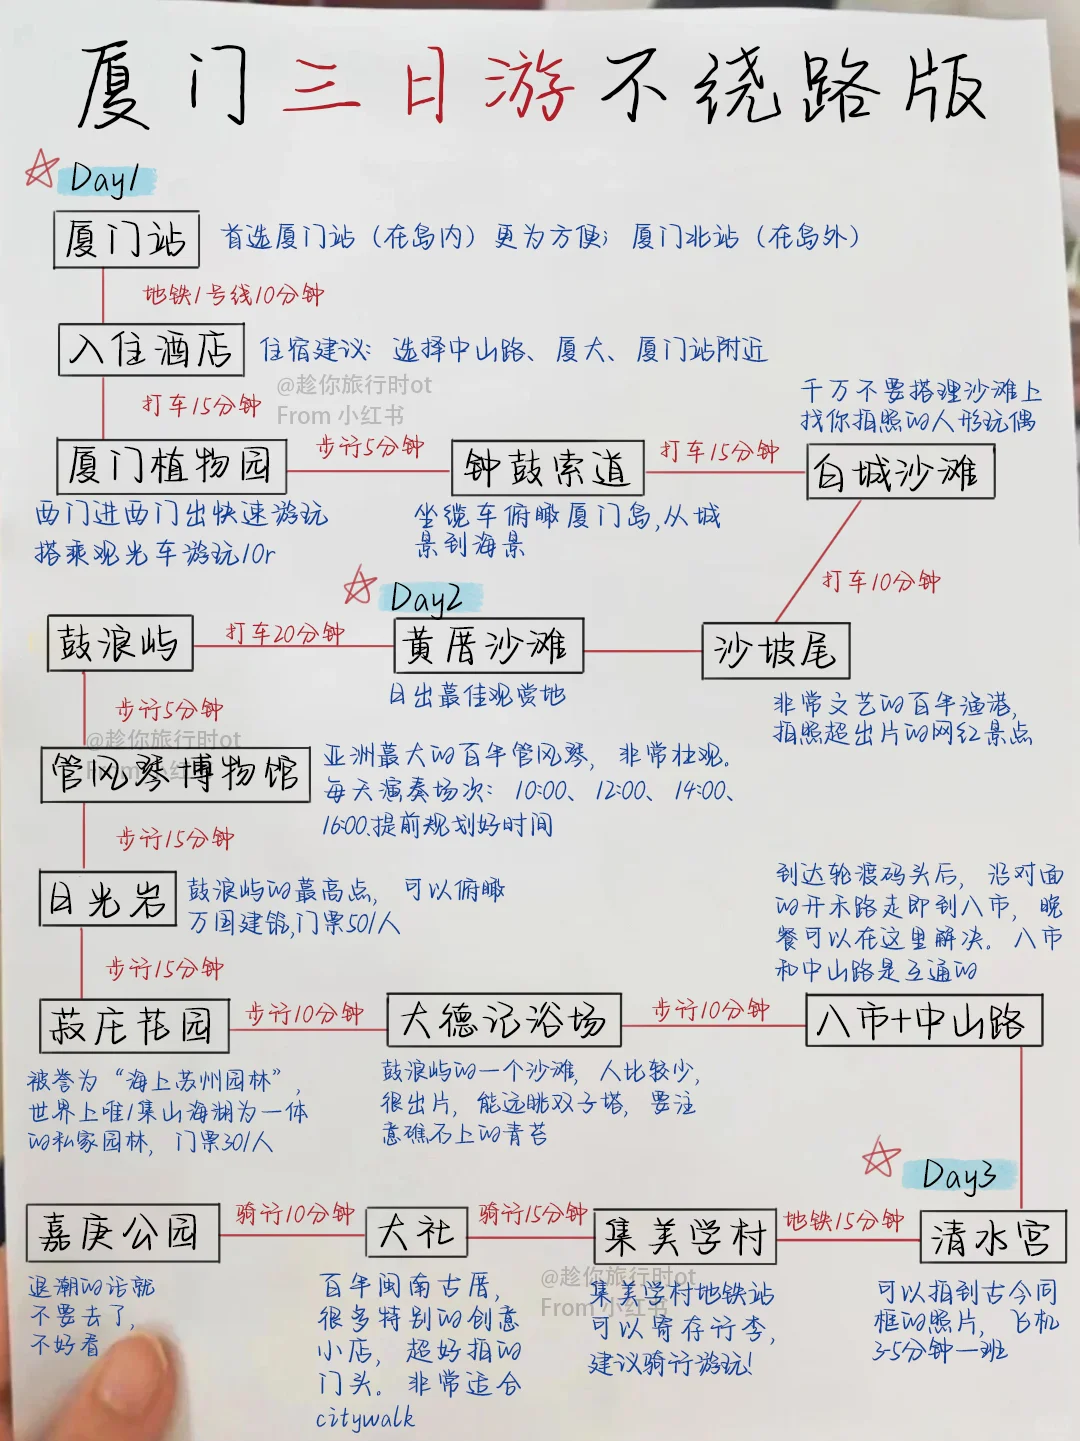 厦门三日游不绕路版
Day1
厦门站
首选厦门站（在岛内）更为方便；厦门北站（在岛外）
地铁1号线10分钟
入住酒店
住宿建议：选择中山路、厦大、厦门站附近
@趁你旅行时ot
From 小红书
打车15分钟
千万不要搭理沙滩上
找你拍照的人形玩偶
厦门植物园
步行5分钟
钟鼓索道
打车15分钟
白城沙滩
西门进西门出快速游玩
搭乘观光车游玩10r
坐缆车俯瞰厦门岛,从城
景到海景
打车10分钟
Day2
鼓浪屿
打车20分钟
黄厝沙滩
沙坡尾
日出最佳观赏地
非常文艺的百年渔港，
拍照超出片的网红景点
步行5分钟
@趁你旅行时ot
From 小红书
管风琴博物馆
亚洲最大的百年管风琴，非常壮观.
每天演奏场次：10:00、12:00、14:00、
16:00.提前规划好时间
步行15分钟
日光岩
鼓浪屿的最高点，可以俯瞰
万国建筑,门票50/人
到达轮渡码头后，沿对面
的开禾路走即到八市，晚
餐可以在这里解决.八市
和中山路是互通的
步行15分钟
菽庄花园
步行10分钟
大德记浴场
步行10分钟
八市+中山路
被誉为“海上苏州园林”，
世界上唯1集山海湖为一体
的私家园林，门票30/人
鼓浪屿的一个沙滩，人比较少，
很出片，能远眺双子塔，要注
意礁石上的青苔
Day3
嘉庚公园
骑行10分钟
大社
骑行15分钟
集美学村
地铁15分钟
清水宫
退潮的话就
不要去了，
不好看
百年闽南古厝，
很多特别的创意
小店，超好拍的
门头.非常适合
citywalk
@趁你旅行时ot
From 小红书
集美学村地铁站
可以寄存行李，
建议骑行游玩!
可以拍到古今同
框的照片，飞机
3-5分钟一班